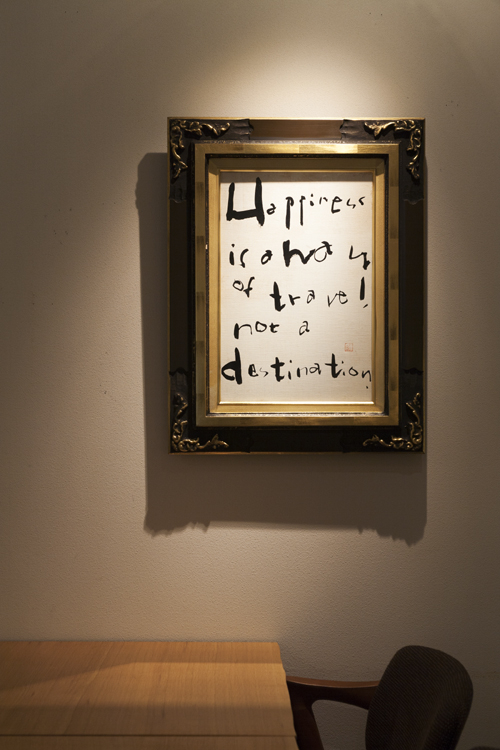 Happiness
is a way
of travel,
not a
destination.